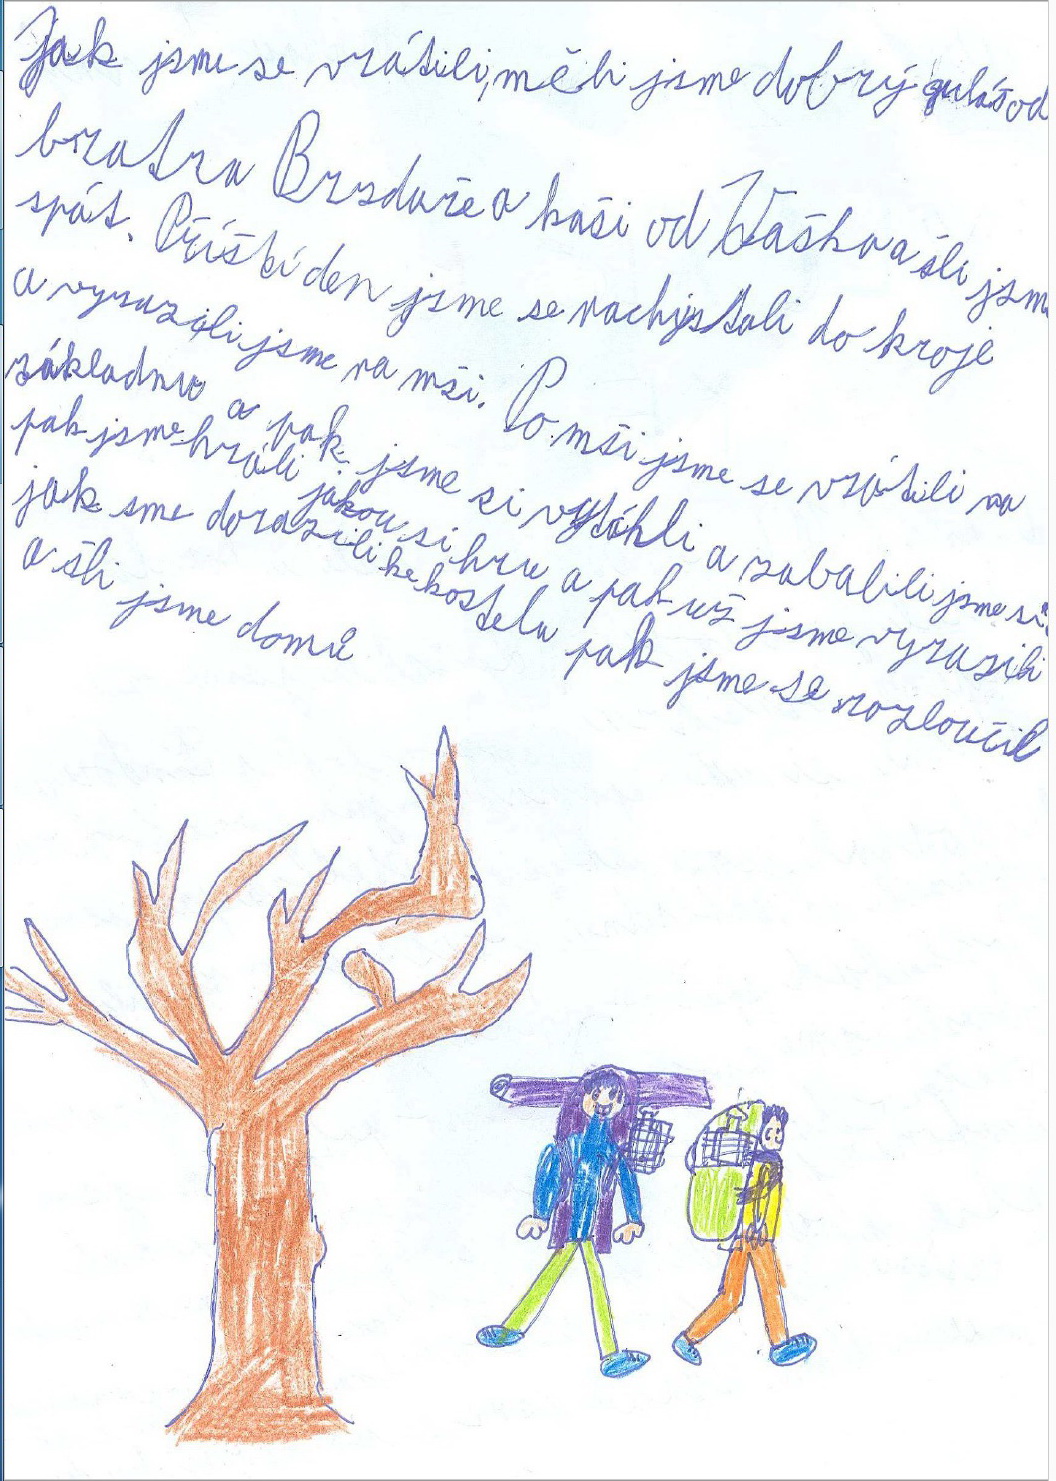 Jak jsme se vrátili, měli jsme dobrý guláš od
bratra Brzdaře a kaši od Vaška a šli jsme
spát. Příští den jsme se nachystali do kroje
a vyrazili jsme na mši. Po mši jsme se vrátili na
základnu a pak jsme si vytáhli a zabalili jsme si.
pak jsme hráli jakou si hru a pak už jsme vyrazili
jak sme dorazili ke kostelu pak jsme se rozloučil
a šli jsme domů